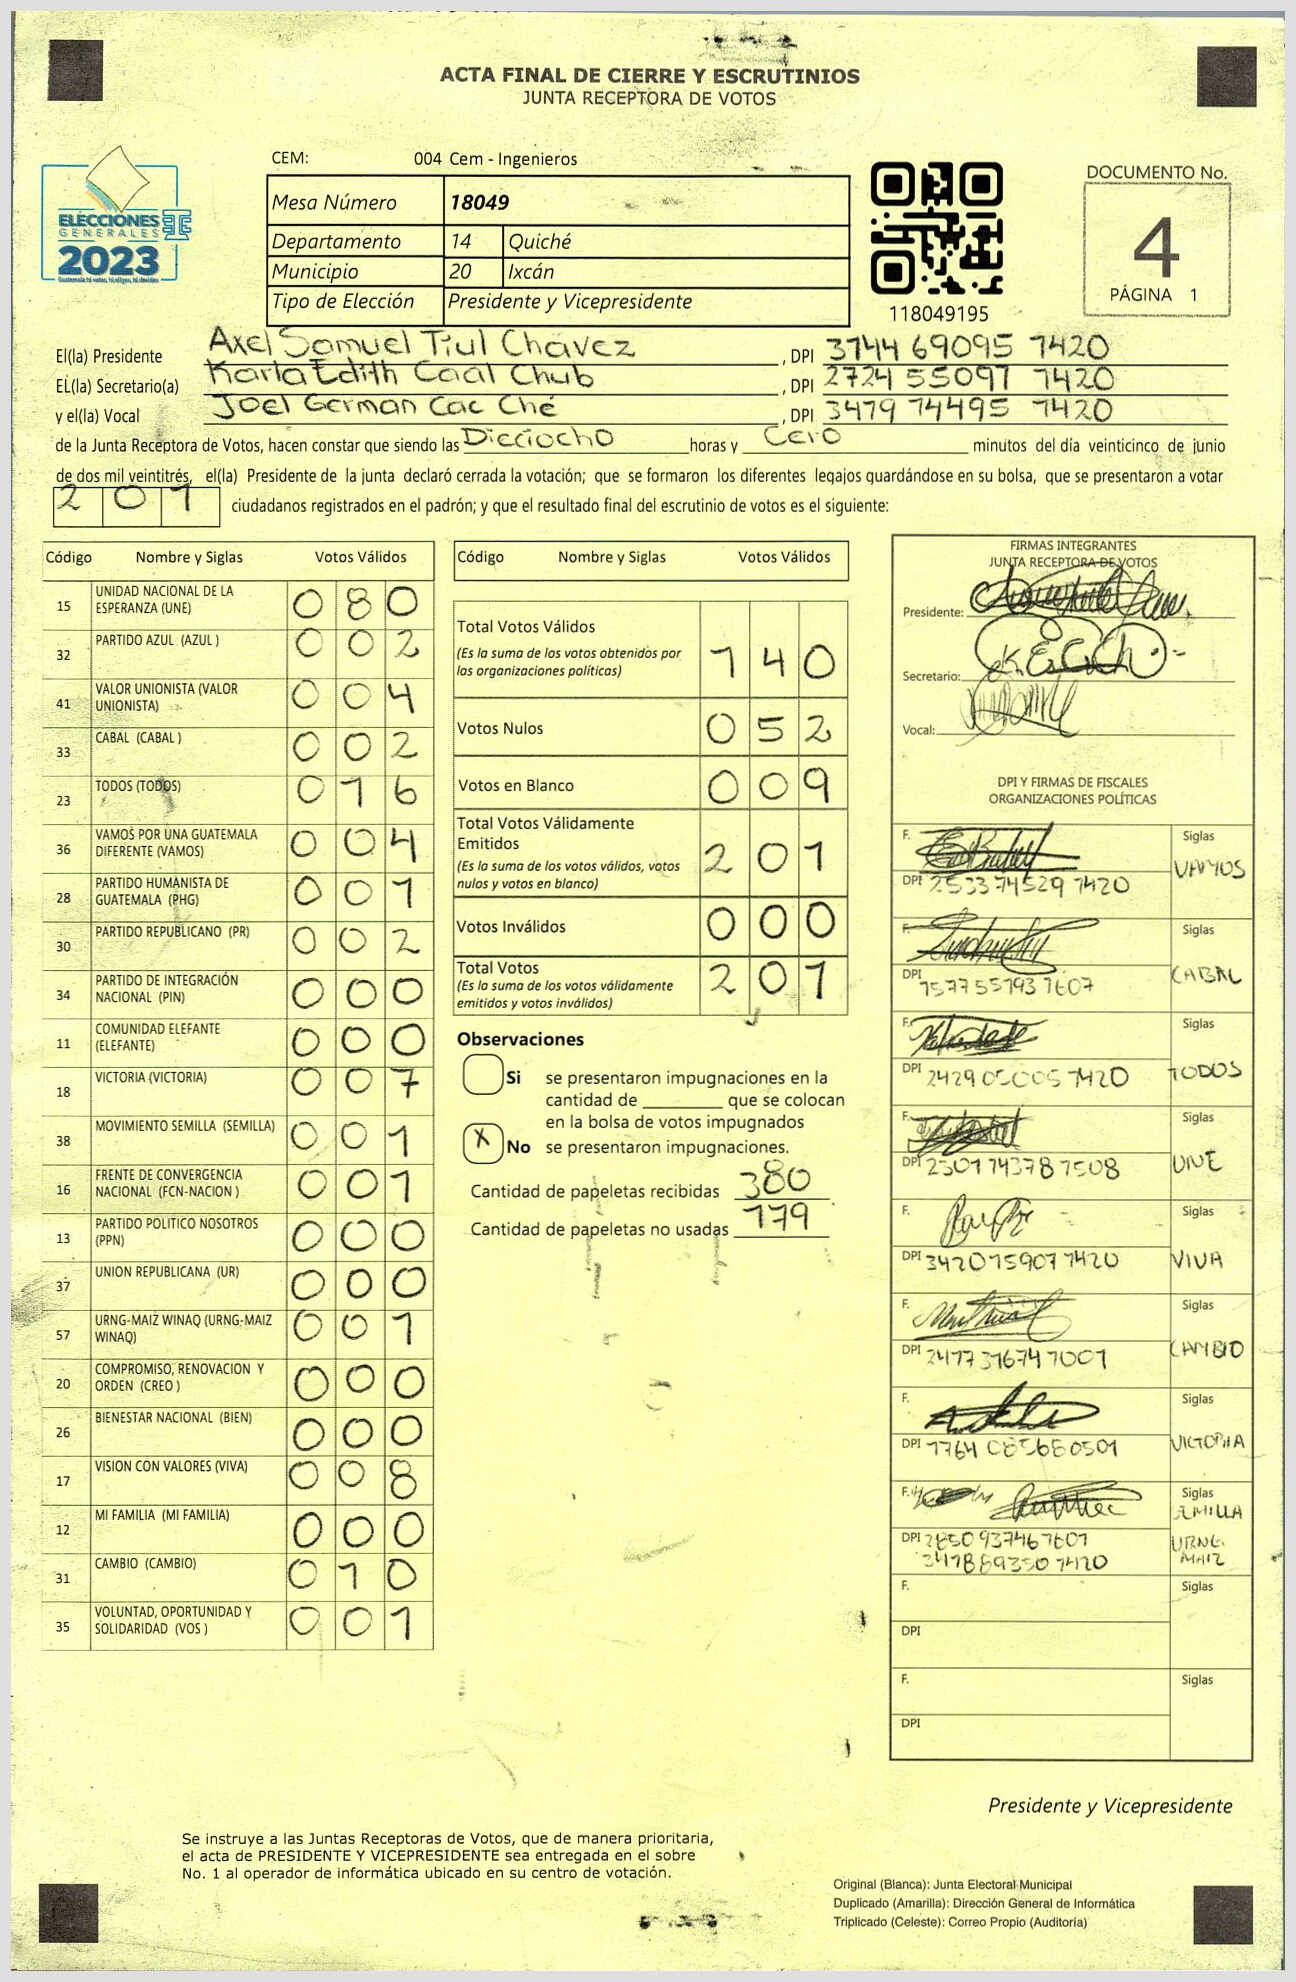 ACTA FINAL DE CIERRE Y ESCRUTINIOS
JUNTA RECEPTORA DE VOTOS
ELECCIONES
GENERALES
2023
CEM: 004 Cem - Ingenieros
Mesa Número 18049
Departamento 14 Quiché
Municipio 20 Ixcán
Tipo de Elección Presidente y Vicepresidente
118049195
DOCUMENTO No.
4
PÁGINA 1
El(la) Presidente Axel Samuel Tiul Chávez, DPI 3744 69095 1420
EL(la) Secretario(a) Karla Edith Caal Chub, DPI 2724 55097 1420
y el(la) Vocal Joel German Cac Ché, DPI 3479 74495 1420
de la Junta Receptora de Votos, hacen constar que siendo las Dieciocho horas y Cero minutos del día veinticinco de junio
de dos mil veintitrés, el(la) Presidente de la junta declaró cerrada la votación; que se formaron los diferentes legajos quardándose en su bolsa, que se presentaron a votar
201 ciudadanos registrados en el padrón; y que el resultado final del escrutinio de votos es el siguiente:
Código Nombre y Siglas Votos Válidos
15 UNIDAD NACIONAL DE LA ESPERANZA (UNE) 080
32 PARTIDO AZUL (AZUL ) 002
41 VALOR UNIONISTA (VALOR UNIONISTA) 004
33 CABAL (CABAL ) 002
23 TODOS (TODOS) 016
36 VAMOS POR UNA GUATEMALA DIFERENTE (VAMOS) 004
28 PARTIDO HUMANISTA DE GUATEMALA (PHG) 001
30 PARTIDO REPUBLICANO (PR) 002
34 PARTIDO DE INTEGRACIÓN NACIONAL (PIN) 000
11 COMUNIDAD ELEFANTE (ELEFANTE) 000
18 VICTORIA (VICTORIA) 007
38 MOVIMIENTO SEMILLA (SEMILLA) 001
16 FRENTE DE CONVERGENCIA NACIONAL (FCN-NACION ) 001
13 PARTIDO POLITICO NOSOTROS (PPN) 000
37 UNION REPUBLICANA (UR) 000
57 URNG-MAIZ WINAQ (URNG-MAIZ WINAQ) 001
20 COMPROMISO, RENOVACION Y ORDEN (CREO ) 000
26 BIENESTAR NACIONAL (BIEN) 000
17 VISION CON VALORES (VIVA) 008
12 MI FAMILIA (MI FAMILIA) 000
31 CAMBIO (CAMBIO) 010
35 VOLUNTAD, OPORTUNIDAD Y SOLIDARIDAD (VOS ) 001
Código Nombre y Siglas Votos Válidos
Total Votos Válidos 140
(Es la suma de los votos obtenidos por
las organizaciones políticas)
Votos Nulos 052
Votos en Blanco 009
Total Votos Válidamente
Emitidos 201
(Es la suma de los votos válidos, votos
nulos y votos en blanco)
Votos Inválidos 000
Total Votos 201
(Es la suma de los votos válidamente
emitidos y votos inválidos)
Observaciones
Si se presentaron impugnaciones en la
cantidad de ________ que se colocan
en la bolsa de votos impugnados
X No se presentaron impugnaciones.
Cantidad de papeletas recibidas 380
Cantidad de papeletas no usadas 179
FIRMAS INTEGRANTES
JUNTA RECEPTORA DE VOTOS
Presidente:
Secretario:
Vocal:
DPI Y FIRMAS DE FISCALES
ORGANIZACIONES POLÍTICAS
F. Siglas
DPI 2533 74529 1420 VAMOS
F. Siglas
DPI 1577 55793 1607 CABAL
F. Siglas
DPI 2429 05005 1420 TODOS
F. Siglas
DPI 2301 74378 1508 UNE
F. Siglas
DPI 3420 15907 1420 VIVA
F. Siglas
DPI 2417 31674 1001 CAMBIO
F. Siglas
DPI 1764 08568 0501 VICTORIA
F. Siglas
SEMILLA
DPI 2850 93746 1601 URNG
3478 89350 1420 MAIZ
F. Siglas
DPI
F. Siglas
DPI
Presidente y Vicepresidente
Se instruye a las Juntas Receptoras de Votos, que de manera prioritaria,
el acta de PRESIDENTE Y VICEPRESIDENTE sea entregada en el sobre
No. 1 al operador de informática ubicado en su centro de votación.
Original (Blanca): Junta Electoral Municipal
Duplicado (Amarilla): Dirección General de Informática
Triplicado (Celeste): Correo Propio (Auditoría)